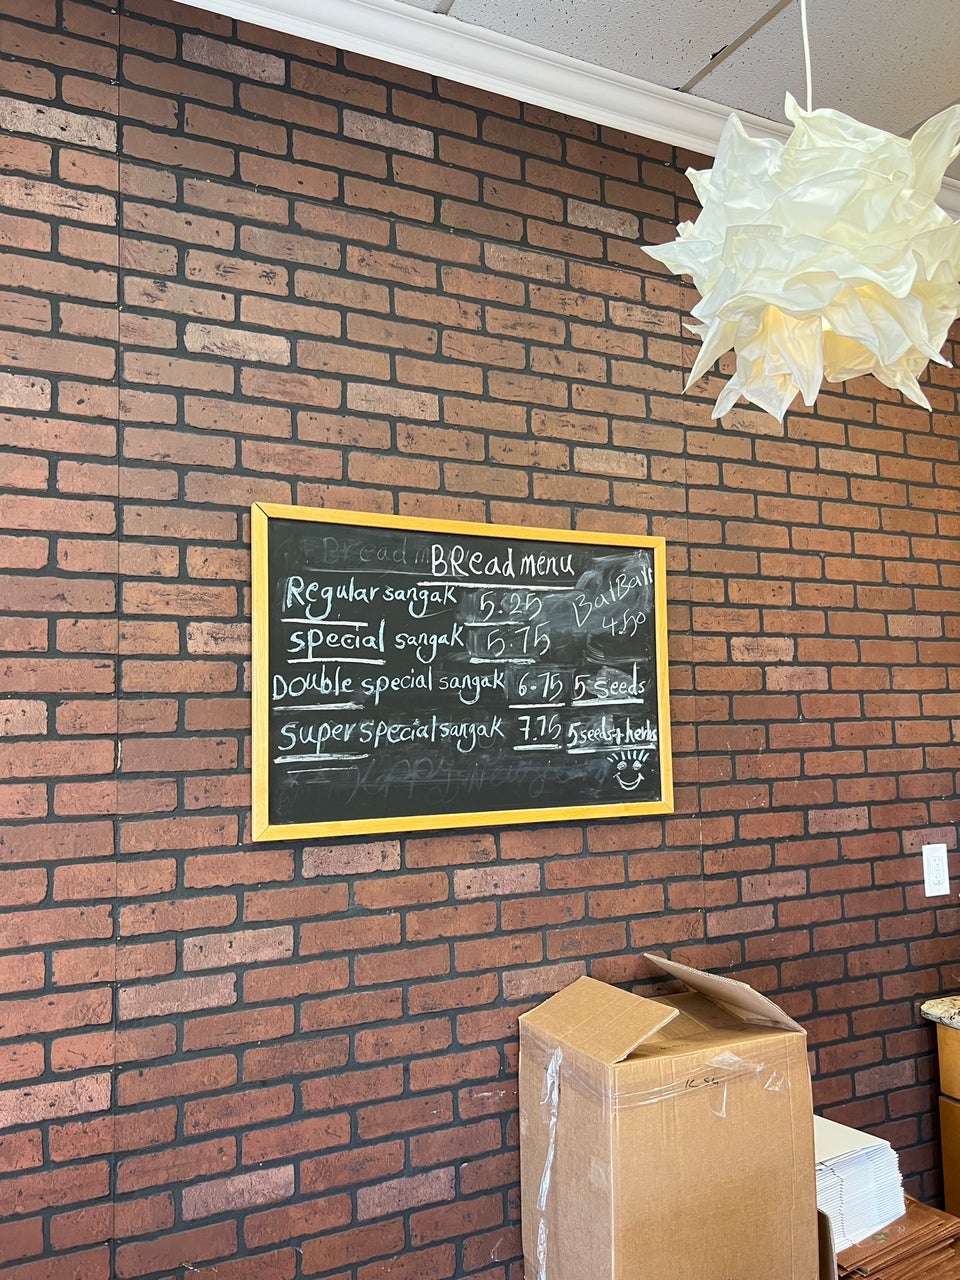 BRead menu
Regular sangak 5.25
BalBali
4.50
special sangak 5.75
Double special sangak 6.75 5 seeds
super special sangak 7.75 5 seeds+herbs